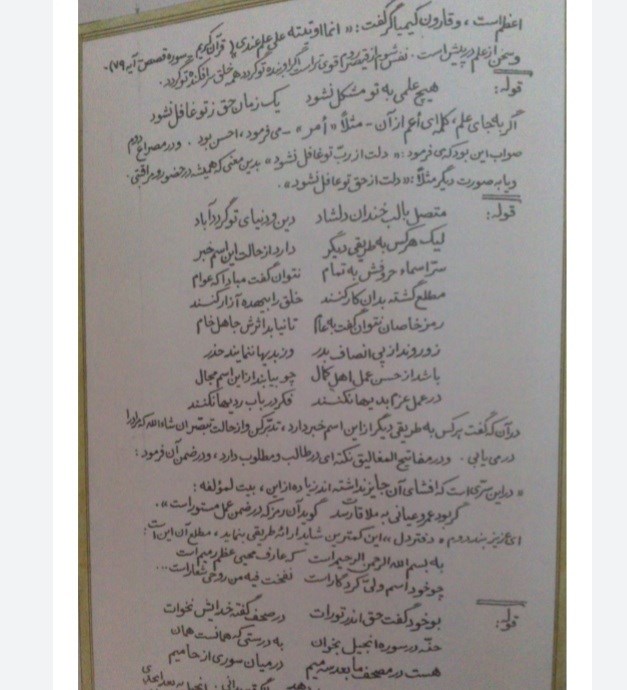 اعظم است، و قارون کیمیاگر گفت: «انما اوتیته علی علم عندی» (قرآن کریم - سوره قصص، آیه ۷۹)
و سخن از علم در پیش است. نفس شوم از قیصر روم قوی تر است اگر او بنده تو گردد همه خلق سرافکنده تو گردد.
قوله: هیچ علمی به تو مشکل نشود یک زمان حق ز تو غافل نشود
اگر به جای علم، کلمه ای اعم از آن - مثلاً «امر» - می فرمود، احسن بود. و در مصراع دوم
صواب این بود که می فرمود: «دلت از ربّ تو غافل نشود» بدین معنی که همیشه در حضور و مراقبتی.
و یا به صورت دیگر مثلاً: «دلت از حق تو غافل نشود».
قوله: متصل با لب خندان دلشاد دین و دنیای تو گردد آباد
لیک هر کس به طریقی دیگر دارد از حالت این اسم خبر
سرّ اسماء حروفش به تمام نتوان گفت مبادا که عوام
مطلع گشته بدان کار کنند خلق را بیهده آزار کنند
رمز خاصان نتوان گفت به عام تا نیابد اثرش جاهل خام
زود روند از پی انصاف بدر وز بدیها ننمایند حذر
باشد از حسن عمل اهل کمال چو بیابند از این اسم مجال
در عمل عزم بدیها نکنند فکر در باب ردیها نکنند
در آن که گفت هر کس به طریقی دیگر از این اسم خبر دارد، تدبّر کن و از حالت
در می یابی. و در مفاتیح المغالیق نکته ای در طالب و مطلوب دارد، و در ضمن آن فرمود:
«در این سرّی است که افشای آن جایز نداشته اند زیاده از این، بیت لمؤلفه:
گر بود عمر و عیانی به ملاقات رسد گوید آن رمز که در ضمن عمل مستور است».
ای عزیز بنده روم، دفتر دل «این کمترین شاید ارائه طریقی بنماید، مطلع آن این است:
به بسم الله الرحمن الرحیم است که عارف محیی عظم رمیم است
چو خود اسم ولیّ کردگار است نفخت فیه من روحی شعار است...
قوله: بو خود گفت حق اندر تورات در صحف گفته خدایش نخوات
حنّه در سوره انجیل بخوان به درستی که همانست همان
هست در مصحف ما بعد سه میم در میان سوری از حامیم